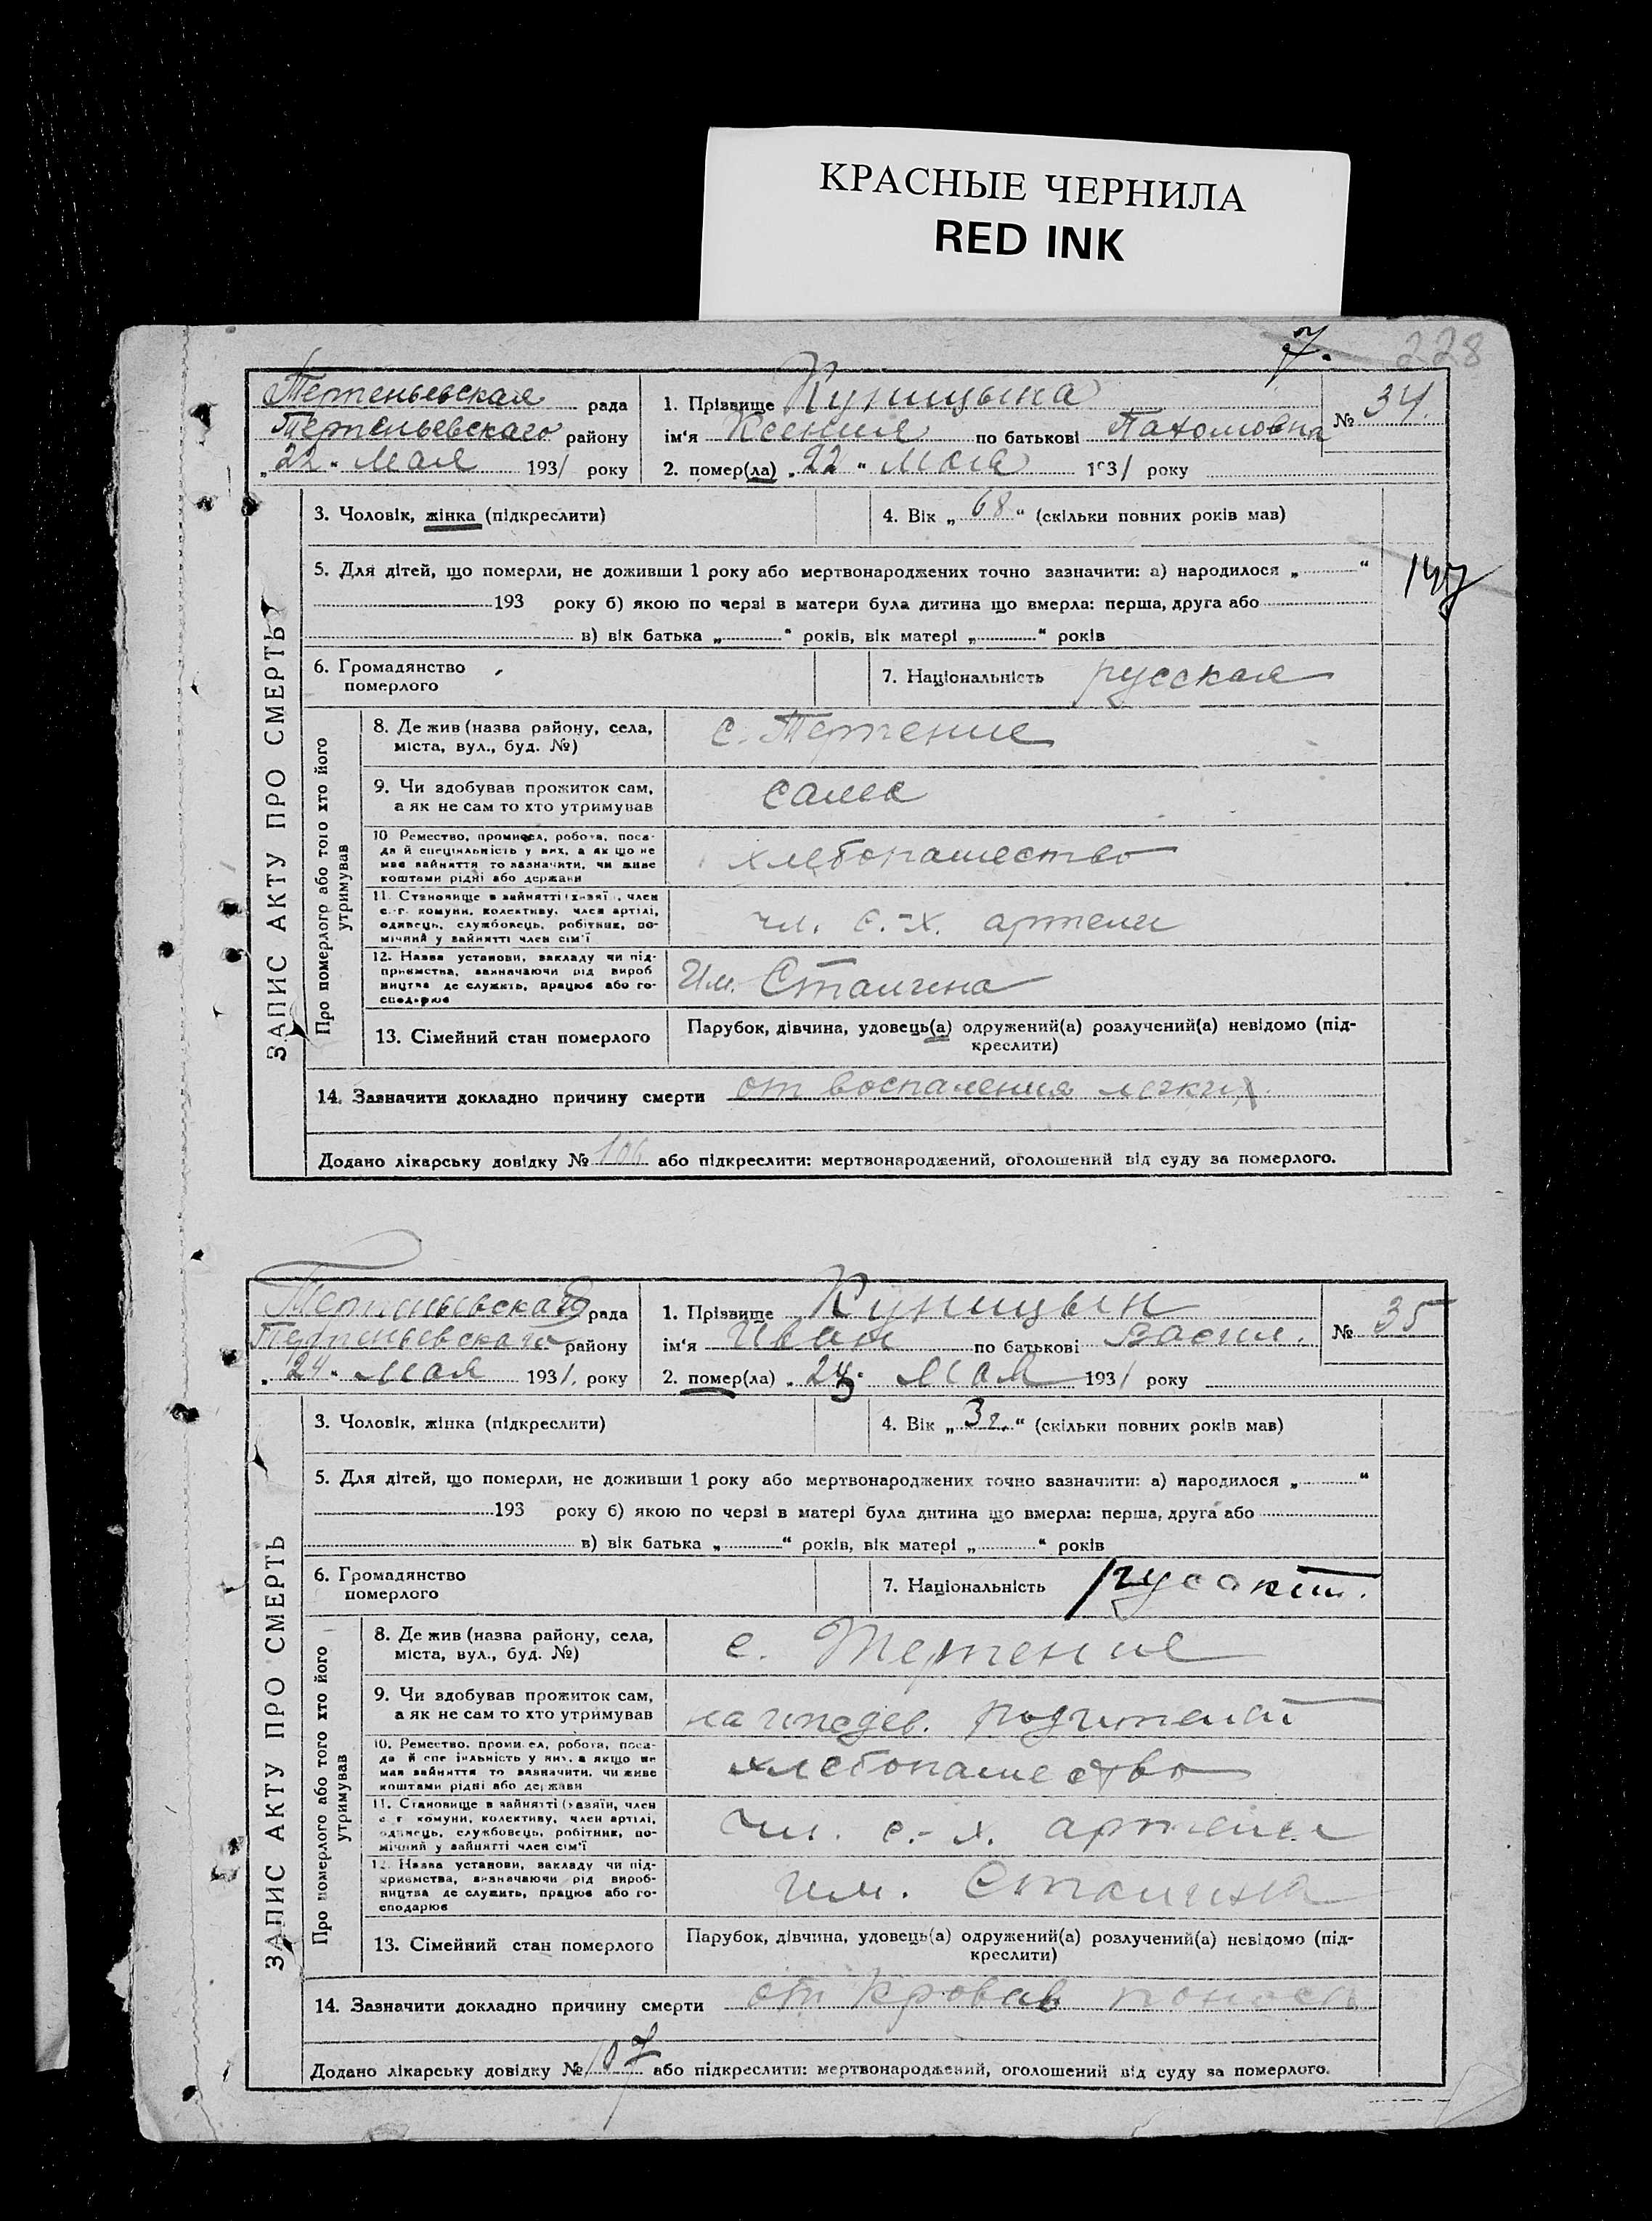 КРАСНЫЕ ЧЕРНИЛА
RED INK
7.
228
Терпеньевская рада
Терпеньевскаго району
„22“ Мая 1931 року
1. Прізвище Куницына
ім'я Ксения по батькові Пахомовна
2. помер(ла) „22“ Мая 1931 року
№ 34.
ЗАПИС АКТУ ПРО СМЕРТЬ
3. Чоловік, жінка (підкреслити)
4. Вік „68“ (скільки повних років мав)
5. Для дітей, що померли, не доживши 1 року або мертвонароджених точно зазначити: а) народилося „ “
193 року б) якою по черзі в матери була дитина що вмерла: перша, друга або
в) вік батька „ “ років, вік матері „ “ років
147
6. Громадянство
померлого
7. Національність русская
Про померлого або того хто його
утримував
8. Де жив (назва району, села,
міста, вул., буд. №)
с. Терпение
9. Чи здобував прожиток сам,
а як не сам то хто утримував
сама
10 Ремество, промисел, робота, поса-
да й спеціяльність у них, а як що не
має зайняття то зазначити, чи живе
коштами рідні або держави
хлебопашество
11. Становище в зайнятті (хазяї , член
с.-г. комуни, колективу, член артілі,
одинець, службовець, робітник, по-
мічний у зайнятті член сім'ї
чл. с.-х. артели
12. Назва установи, закладу чи під-
приємства, зазначаючи рід вироб
ництва де служить, працює або го-
сподарює
Им. Сталина
13. Сімейний стан померлого
Парубок, дівчина, удовець(а) одружений(а) розлучений(а) невідомо (під-
креслити)
14. Зазначити докладно причину смерти от воспаления легких
Додано лікарську довідку № 106 або підкреслити: мертвонароджений, оголошений від суду за померлого.
Терпеньевскаго рада
Терпеньевскаго району
„24“ Мая 1931. року
1. Прізвище Куницын
ім'я Иван по батькові Васил.
2. помер(ла) „ “ Мая 1931 року
№ 35
ЗАПИС АКТУ ПРО СМЕРТЬ
3. Чоловік, жінка (підкреслити)
4. Вік „3 г.“ (скільки повних років мав)
5. Для дітей, що померли, не доживши 1 року або мертвонароджених точно зазначити: а) народилося „ “
193 року б) якою по черзі в матери була дитина що вмерла: перша, друга або
в) вік батька „ “ років, вік матері „ “ років
6. Громадянство
померлого
7. Національність
Про померлого або того хто його
утримував
8. Де жив (назва району, села,
міста, вул., буд. №)
с. Терпение
9. Чи здобував прожиток сам,
а як не сам то хто утримував
на иждев. родителей
10. Ремество, промисел, робота, поса-
да й спеціяльність у них, а якщо не
має зайняття то зазначити, чи живе
коштами рідні або держави
хлебопашество
11. Становище в зайнятті (хазяїн, член
с г комуни, колективу, член артілі,
одинець, службовець, робітник, по-
мічний у зайнятті член сім'ї
чл. с.-х. артели
12. Назва установи, закладу чи під-
приємства, зазначаючи рід вироб-
ництва де служить, працює або го-
сподарює
им. Сталина
13. Сімейний стан померлого
Парубок, дівчина, удовець(а) одружений(а) розлучений(а) невідомо (під-
креслити)
14. Зазначити докладно причину смерти от кровав поноса
Додано лікарську довідку № 107 або підкреслити: мертвонароджений, оголошений від суду за померлого.